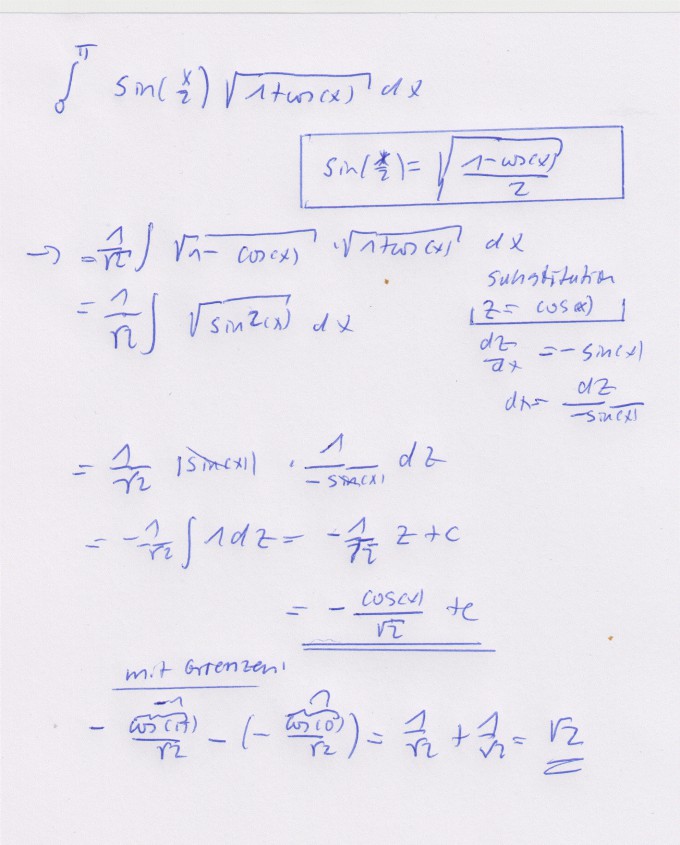 ∫₀^π sin(x/2) √(1+cos(x)) dx
sin(x/2) = √((1-cos(x))/2)
→ = 1/√2 ∫ √(1-cos(x)) · √(1+cos(x)) dx
= 1/√2 ∫ √(sin²(x)) dx
Substitution
z = cos(x)
dz/dx = -sin(x)
dx = dz/(-sin(x))
= 1/√2 |sin(x)| · 1/(-sin(x)) dz
= -1/√2 ∫ 1 dz = -1/√2 z + c
= - cos(x)/√2 + c
mit Grenzen:
-1 1
- cos(π)/√2 - (- cos(0)/√2) = 1/√2 + 1/√2 = √2